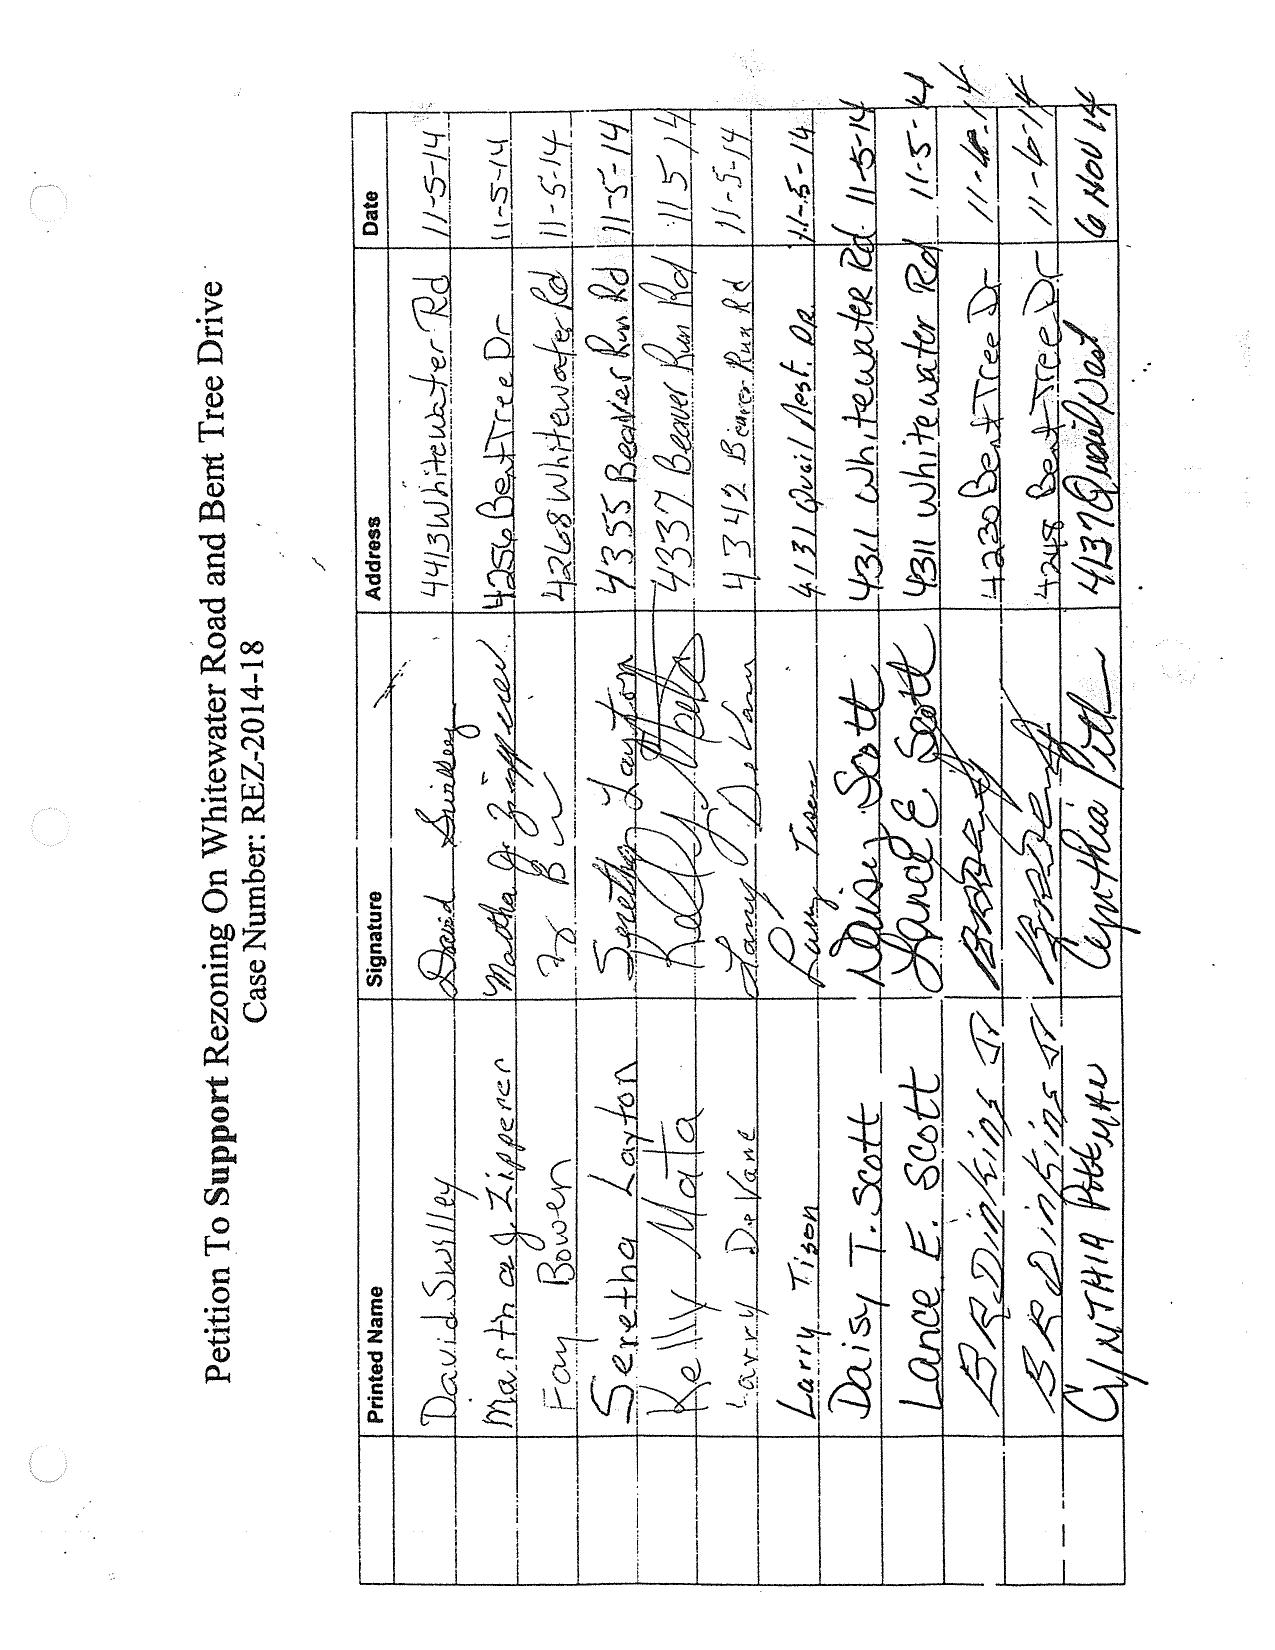 Petition To Support Rezoning On Whitewater Road and Bent Tree Drive
Case Number: REZ-2014-18
Printed Name Signature Address Date
David Swilley David Swilley 4413 Whitewater Rd 11-5-14
Martha J. Zipperer Martha J. Zipperer 4256 Bent Tree Dr 11-5-14
Fay Bowen 4268 Whitewater Rd 11-5-14
Seretha Layton Seretha Layton 4355 Beaver Run Rd 11-5-14
Kelly Mata Kelly Mata 4337 Beaver Run Rd 11 5 14
Larry DeVane Larry DeVane 4342 Beaver Run Rd 11-5-14
Larry Tison Larry Tison 4131 Quail Nest. DR. 11-5-14
Daisy T. Scott Daisy Scott 4311 Whitewater Rd. 11-5-14
Lance E. Scott Lance E Scott 4311 Whitewater Rd 11-5-14
B R Dinkins Jr 4230 Bent Tree Dr 11-6-14
B R Dinkins Jr 4248 Bent Tree Dr 11-6-14
CYNTHIA Pittman Cynthia 4137 Quail 6 NOV 14